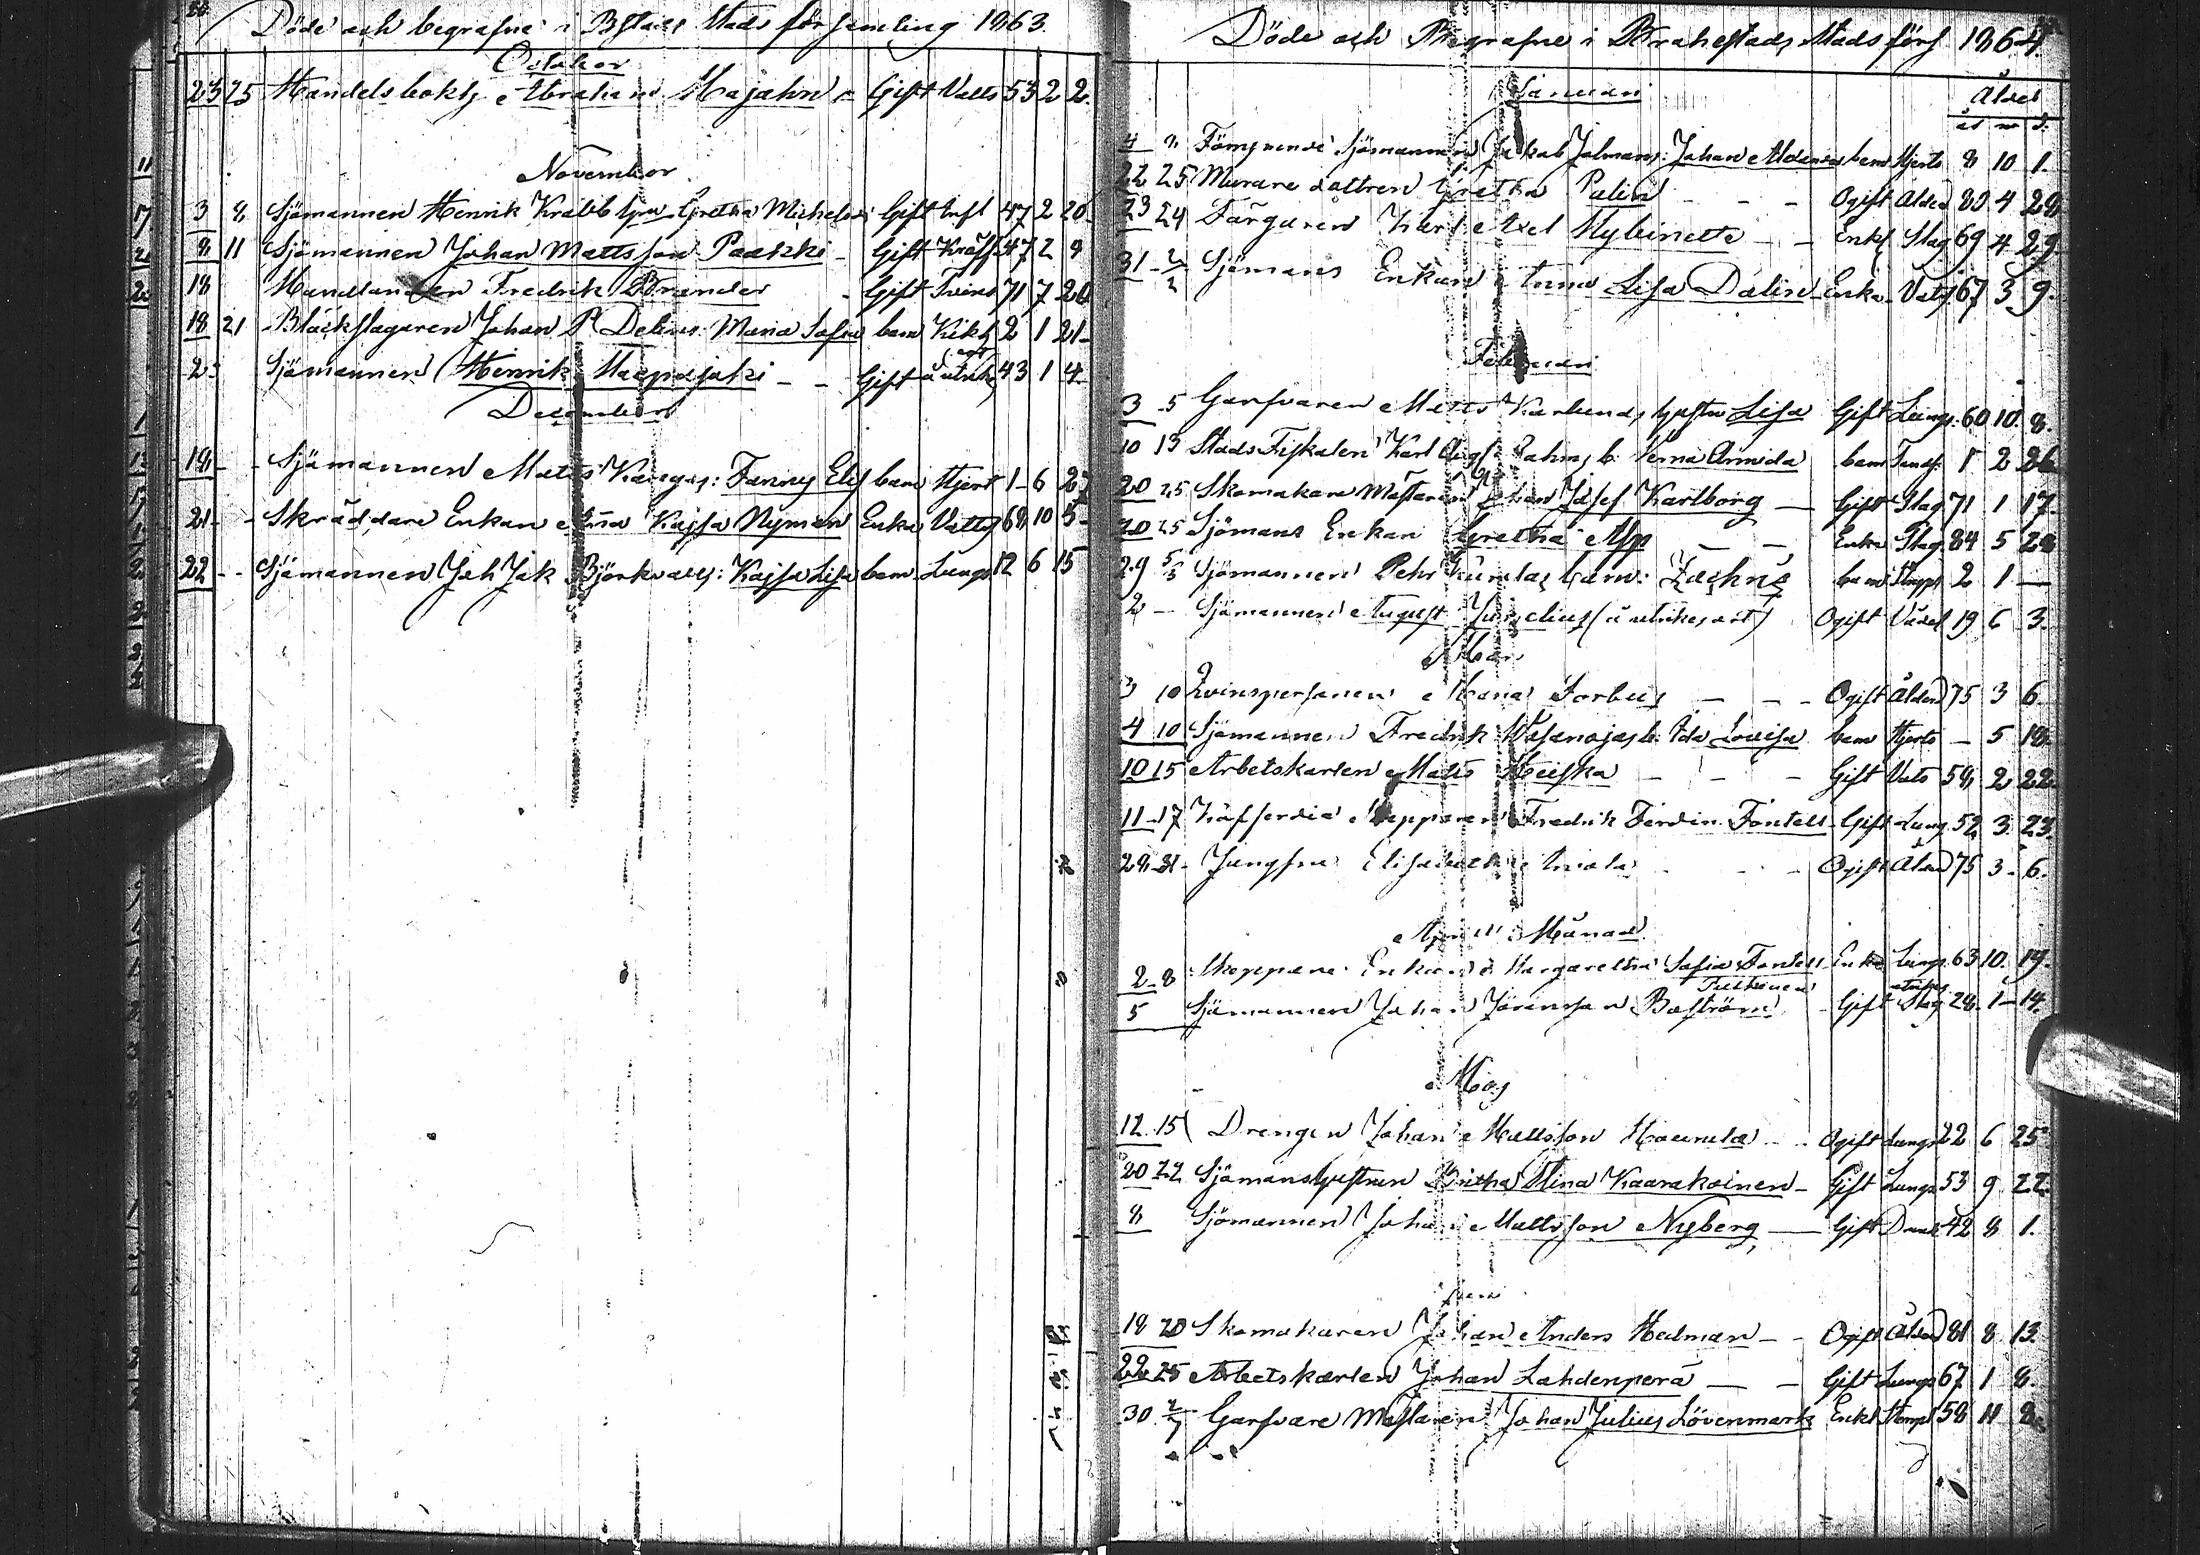 Döde och begrafne i Bstads Stads församling 1863.
October
23 25 Handelsbokh. Abraham Majahn GiftВатts 53 2 2
November
3 8 Sjömannen Henrik Krabb Gretha Michels Gift 47 2 20
8 11 Sjömannen Johan Mattsson Paakki Gift Kräft 47 2 9
18 Handlanden Fredrik Brander Gift Tvins 71 7 20
18 21 Bläckslagaren Johan P. Delins Maria Sofia barn Kikh 2 1 21
Sjömannen Henrik Haapajoki Gift å utrik. ort 43 1 4
December
18 Sjömannen Matts Kangas: Fanny Elis barn Hjert 1 6 27
21 Skräddare Enkan Anna Kajsa Nyman Enka Vatts 68 10 5
22 Sjömannen Joh Jak Björkvall: Kajsa Lisa barn Lungs 12 6 15
Döde och Begrafne i Brahestads Stads förs 1864.
Januari
Ålder
år m d.
4 8 Sjömannen Jakob Johan barn Hjerts 8 10 1.
22 25 Murare dottren Gretha Palin Ogift Ålder 80 4 28
23 24 Färgaren Karl Axel Nybinette Enkl Slag 69 4 29
31 2/2 Sjömans Enkan Anna Lisa Dalin Enka Vats 67 3 9.
Februari
3 5 Garfvaren Matts Karlunds hustru Lisa Gift Lungs 60 10. 8.
10 13 Stads Fiskalen Karl Aug. b. Verna Armida barn Tands. 1 2 26
20 25 Skomakare Mästaren Johan Josef Karlborg Gift Slag 71 1 17.
20 25 Sjömans Enkan Gretha Alp Enka Slag 84 5 28
29 5/3 Sjömannen Pehr barn: Zachris barn Stropp 2 1 —
2 Sjömannen August Jurvelius (å utrikes ort) Ogift Vådel 19 6 3.
Mars
3 10 Qvinspersonen Maria Forbus Ogift Ålder 75 3 6
4 10 Sjömannen Fredrik Wasanojas b. Ida Lovisa barn Hjerts — 5 18
10 15 Arbetskarlen Matts Keiska Gift Vats 58 2 22.
11 17 Kofferdie Skepparen Fredrik Ferdin. Fontell Gift Lung 52 3 23
28 31 Jungfru Elisabeth Ogift Ålder 75 3 6.
April Månad
2 8 Skeppare Enkan Margaretha Sofia Fontell Enka Lungs 63 10. 19.
5 Sjömannen Johan Göransson Boström Gift Slag 28 1 14.
Maj
12 15 Drengen Johan Mattsson Ogift Lungs 22 6 25
20 22 Sjömanshustrun Britha Stina Kaarakainen Gift Lungs 53 9 22.
8 Sjömannen Johan Mattsson Nyberg Gift Drunk 42 8 1.
Juni
18 20 Skomakaren Johan Anders Hedman Ogift Ålder 81 8 13.
22 25 Arbetskarlen Johan Lahdenperä Gift Lungs 67 1 8.
30 2/7 Garfvare Mästaren Johan Julius Lövenmark Enkl 58 11 8